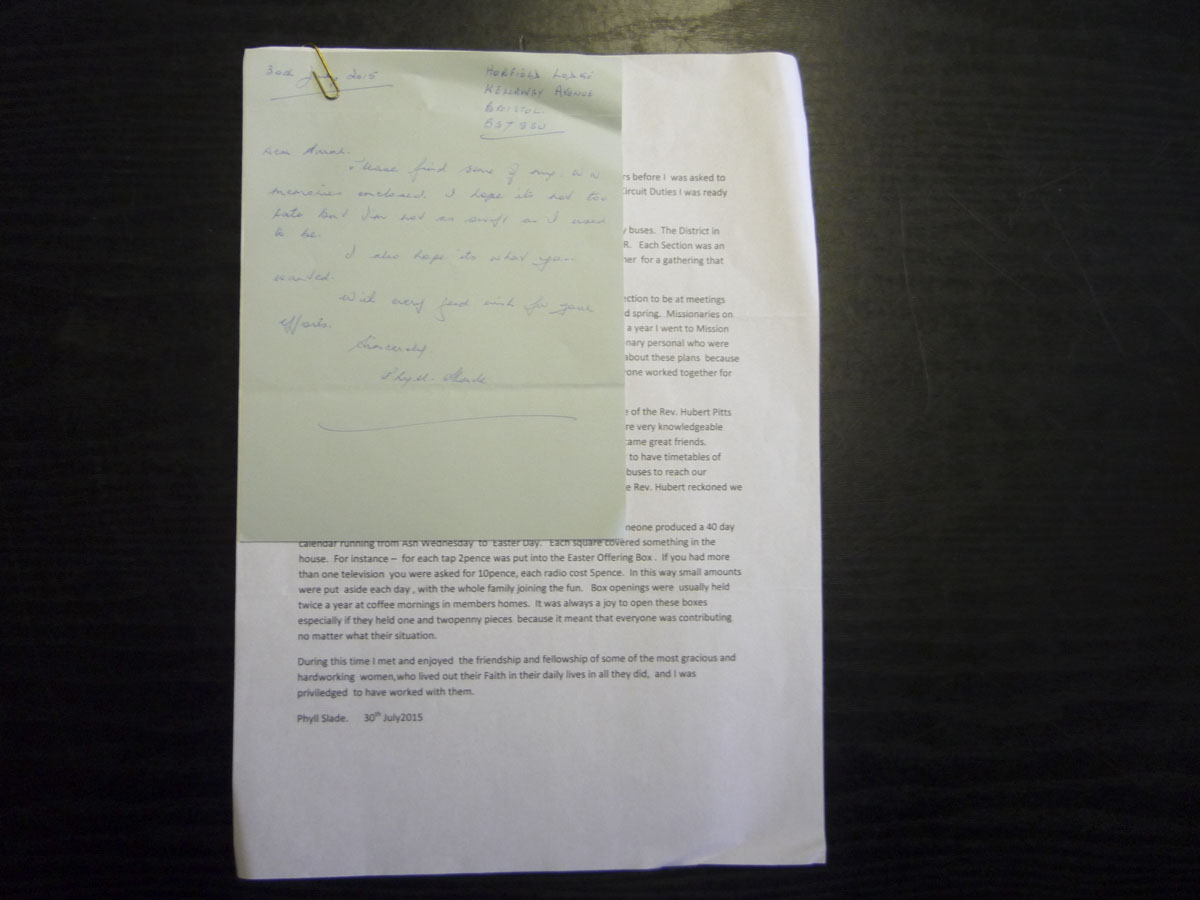 30th July 2015
HORFIELD LODGE
KELLAWAY AVENUE
BRISTOL.
Dear
Please find some of my
memories enclosed. I hope its not too
late but I'm not as swift as I used
to be.
I also hope its what you
wanted.
With every good wish for your
efforts.
Sincerely
Phyll. Slade
rs before I was asked to
Circuit Duties I was ready
y buses. The District in
R. Each Section was an
her for a gathering that
ection to be at meetings
d spring. Missionaries on
a year I went to Mission
nary personal who were
about these plans because
one worked together for
e of the Rev. Hubert Pitts
re very knowledgeable
ame great friends.
to have timetables of
buses to reach our
e Rev. Hubert reckoned we
meone produced a 40 day
calendar running from Ash Wednesday to Easter Day. Each square covered something in the
house. For instance – for each tap 2pence was put into the Easter Offering Box . If you had more
than one television you were asked for 10pence, each radio cost 5pence. In this way small amounts
were put aside each day , with the whole family joining the fun. Box openings were usually held
twice a year at coffee mornings in members homes. It was always a joy to open these boxes
especially if they held one and twopenny pieces because it meant that everyone was contributing
no matter what their situation.
During this time I met and enjoyed the friendship and fellowship of some of the most gracious and
hardworking women,who lived out their Faith in their daily lives in all they did, and I was
priviledged to have worked with them.
Phyll Slade. 30th July2015